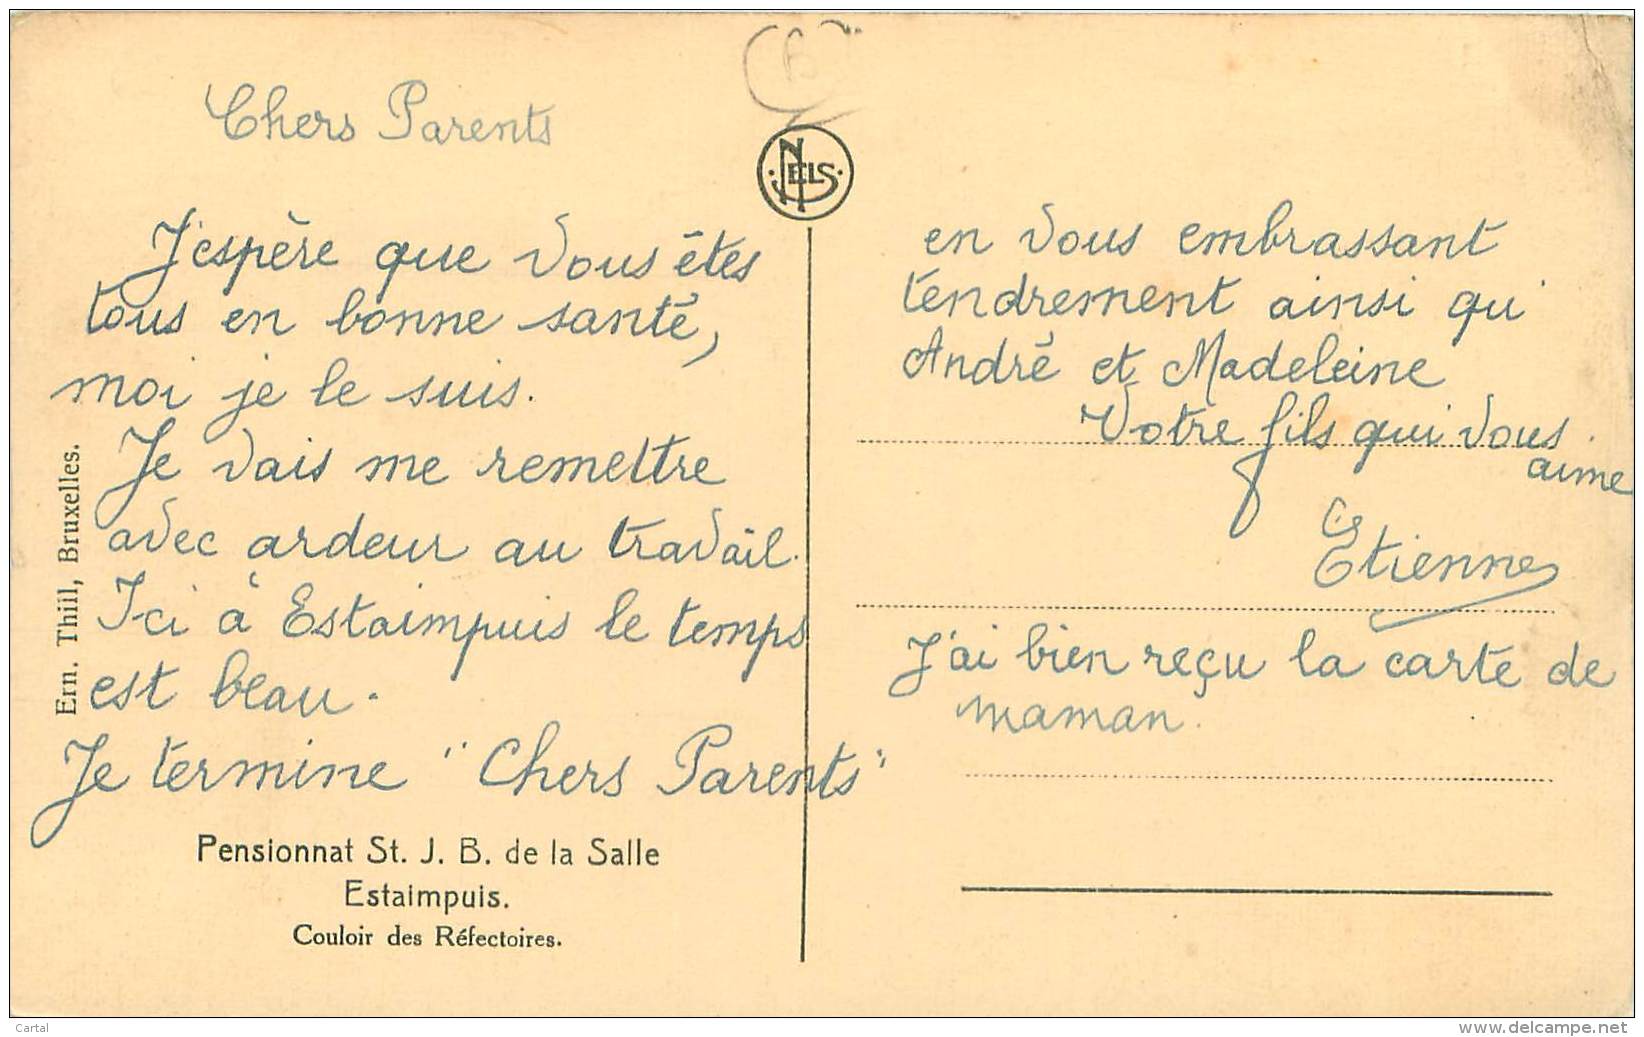 Chers Parents
J'espère que vous êtes
tous en bonne santé,
moi je le suis.
Je vais me remettre
avec ardeur au travail.
Ici à Estaimpuis le temps
est beau.
Je termine "Chers Parents"
en vous embrassant
tendrement ainsi qui
André et Madeleine
Votre fils qui vous
aime
Etienne
J'ai bien reçu la carte de
maman.
NELS
Ern. Thill, Bruxelles.
Pensionnat St. J. B. de la Salle
Estaimpuis.
Couloir des Réfectoires.
Cartal
www.delcampe.net